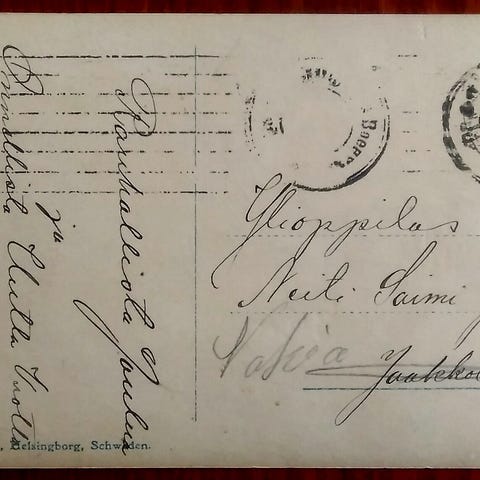 Rauhallista Joulua
ja
Onnellista Uutta Vuotta
Ylioppilas
Neiti Saimi
Jaakko
Helsingborg, Schweden.